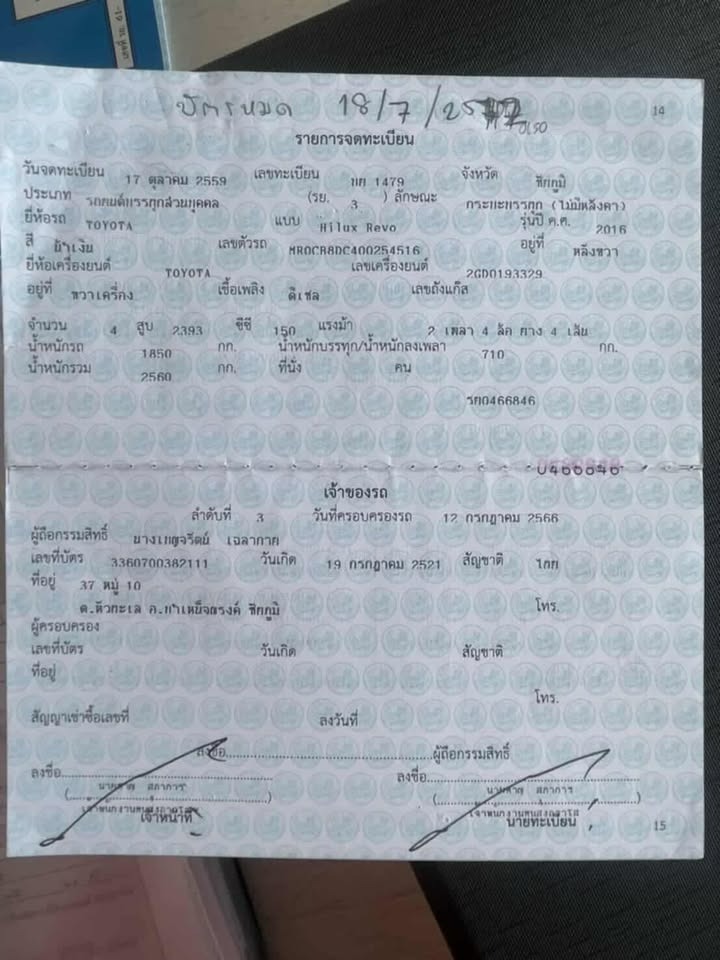 เลขที่ รย. 61-
บัตรหมด 18/7/25
14
รายการจดทะเบียน
วันจดทะเบียน 17 ตุลาคม 2559 เลขทะเบียน 1479 จังหวัด ชัยภูมิ
ประเภท รถยนต์บรรทุกส่วนบุคคล (รย. 3 ) ลักษณะ กระบะบรรทุก (ไม่มีหลังคา)
ยี่ห้อรถ TOYOTA แบบ Hilux Revo รุ่นปี ค.ศ. 2016
สี น้ำเงิน เลขตัวรถ MR0CR8DC400254516 อยู่ที่ หลังขวา
ยี่ห้อเครื่องยนต์ TOYOTA เลขเครื่องยนต์ 2GD0193329
อยู่ที่ ขวาเครื่อง เชื้อเพลิง ดีเซล เลขถังแก๊ส
จำนวน 4 สูบ 2393 ซีซี 150 แรงม้า 2 เพลา 4 ล้อ ยาง 4 เส้น
น้ำหนักรถ 1850 กก. น้ำหนักบรรทุก/น้ำหนักลงเพลา 710 กก.
น้ำหนักรวม 2560 กก. ที่นั่ง คน
รย0466846
0466846
เจ้าของรถ
ลำดับที่ 3 วันที่ครอบครองรถ 12 กรกฎาคม 2566
ผู้ถือกรรมสิทธิ์ นางเพญจรัตน์ เฉลากาย
เลขที่บัตร 3360700382111 วันเกิด 19 กรกฎาคม 2521 สัญชาติ ไทย
ที่อยู่ 37 หมู่ 10
ต.หัวทะเล อ.บำเหน็จณรงค์ ชัยภูมิ โทร.
ผู้ครอบครอง
เลขที่บัตร วันเกิด สัญชาติ
ที่อยู่
โทร.
สัญญาเช่าซื้อเลขที่ ลงวันที่
ลงชื่อ ผู้ถือกรรมสิทธิ์
ลงชื่อ ลงชื่อ
( สภาการ ) ( สภาการ )
เจ้าหน้าที่ นายทะเบียน
15